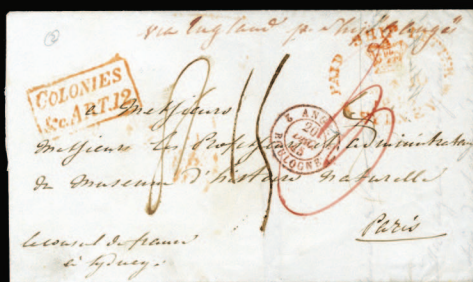 via England pr
PAID SHIP
COLONIES
&c. ART. 12
2 ANGL. 2
BOULOGNE
15
a Messieurs
Messieurs les Professeurs administrateurs
du Museum d'histoire Naturelle
Paris
le consul de france
à Sydney.